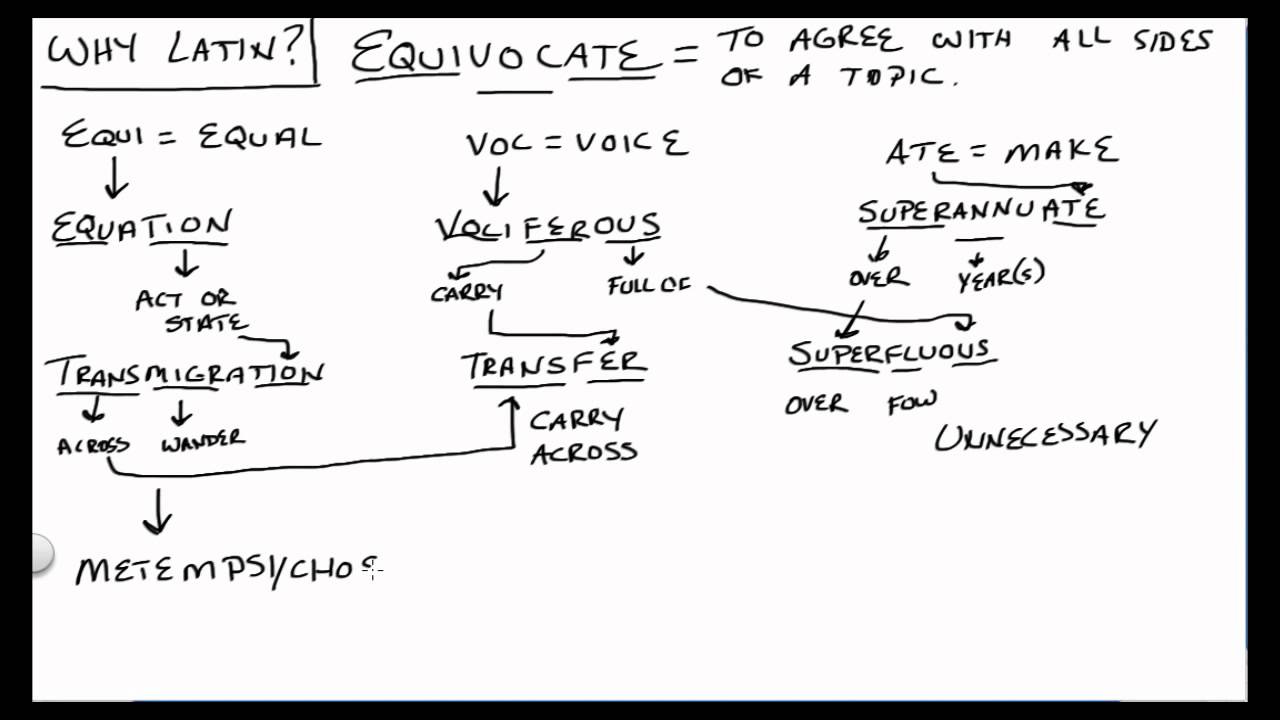 WHY LATIN?
EQUIVOCATE = TO AGREE WITH ALL SIDES
OF A TOPIC.
EQUI = EQUAL
VOC = VOICE
ATE = MAKE
EQUATION
VOCIFEROUS
SUPERANNUATE
ACT OR
STATE
CARRY
FULL OF
OVER
YEAR(S)
TRANSMIGRATION
TRANSFER
SUPERFLUOUS
ACROSS
WANDER
CARRY
ACROSS
OVER
FOW
UNNECESSARY
METEMPSYCHOS